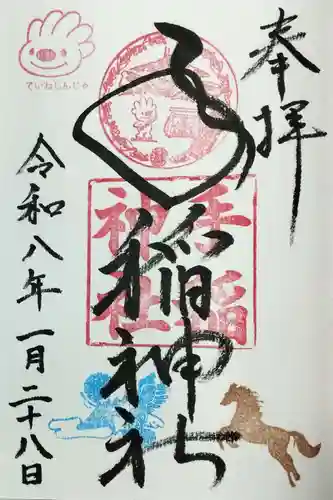 奉拝
手稲神社
手稲神社
令和八年一月二十八日
ていねじんじゃ